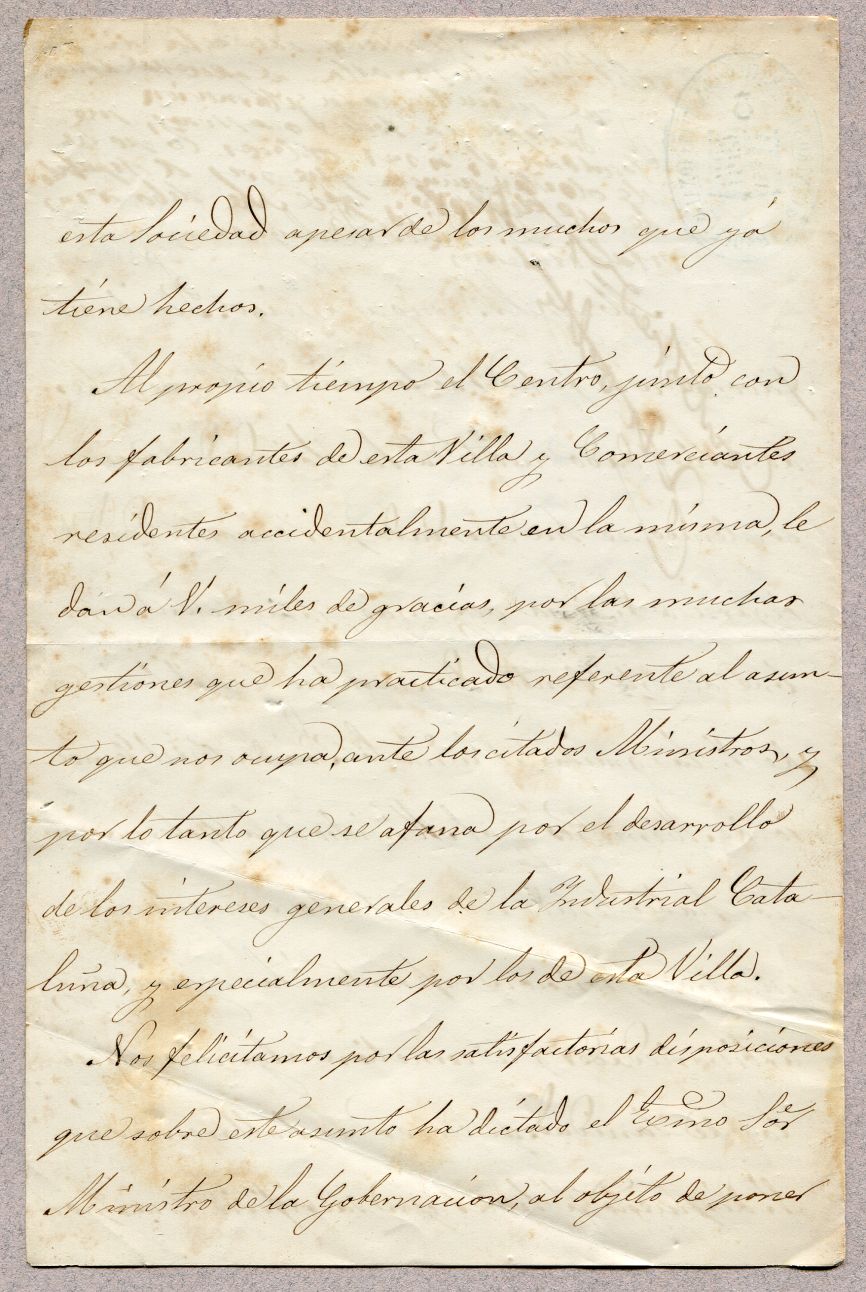 esta Sociedad apesar de los muchos que yá
tiene hechos.
Al propio tiempo el Centro, junto con
los fabricantes de esta Villa y Comerciantes
residentes accidentalmente en la misma, le
dán á V. miles de gracias, por las muchas
gestiones que ha practicado referente al asun-
to que nos ocupa, ante los citados Ministros, y
por lo tanto que se afana por el desarrollo
de los intereses generales de la Industrial Cata-
luña, y especialmente por los de esta Villa.
Nos felicitamos por las satisfactorias disposiciones
que sobre este asunto ha dictado el Exmo Sor
Ministro de la Gobernacion, al objéto de poner